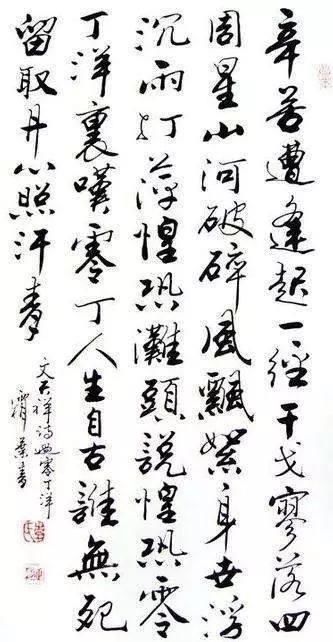 辛苦遭逢起一經干戈寥落四
周星山河破碎風飄絮身世浮
沉雨打萍惶恐灘頭說惶恐零
丁洋裏嘆零丁人生自古誰無死
留取丹心照汗青
文天祥诗過零丁洋